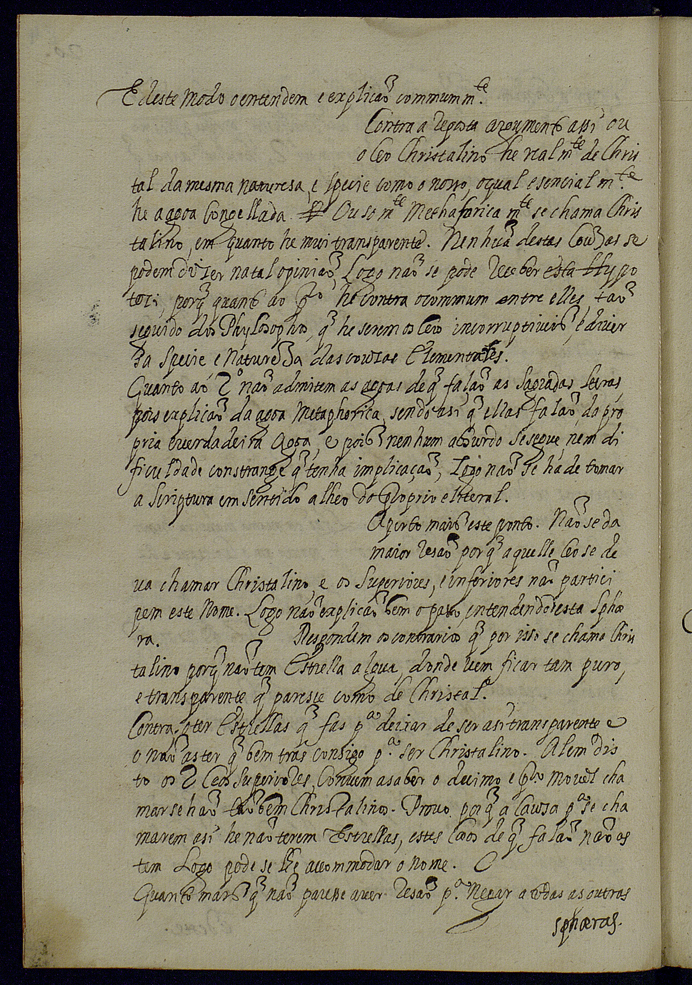 E deste modo o entendem e explicaõ commumm.te
Contra a reposta argumento assi ou
o Ceo Christalino he realm.te de Chris
tal da mesma naturesa, e specie como o nosso, o qual esencialm.te
he agoa Congellada. Ou som.te Methaforicam.te se chama Chris
talino, em quanto he mui transparente. Nenhuã destas Couzas se
podem dizer na tal opiniaõ, Logo naõ se pode receber esta Hypo
tesi, porq̃ quanto ao pr.o he contra o commum entre elles taõ
seguido dos Phylosophos, q̃ he serem os Ceos incorruptiveis, e diver
sa specie e Natureza das couzas Elementares.
Quanto ao 2.o naõ admitem as agoas de q̃ falaõ as sagradas letras
pois explicaõ da agoa Metaphorica, sendo asi q̃ ellas falaõ da pro
pria e verdadeira Agoa, e pois nenhum absurdo se segue, nem di
ficuldade constrange q̃ tenha implicaçaõ, Logo naõ se ha de tomar
a scriptura em sentido alheo do proprio e litteral.
Aperto mais este ponto. Naõ se da
maior resaõ porq̃ aquelle Ceo se de
va chamar Christalino, e os superiores, e inferiores naõ partici
pem este Nome. Logo naõ explicaõ bem o passo, entendendo esta sphæ
ra. Respondem os contrarios q̃ por isso se chama Chris
talino porq̃ naõ tem Estrella algua, donde vem ficar tam puro,
e transparente q̃ paresse como de Christal.
Contra, o ter Estrellas q̃ fas p.a deixar de ser asi transparente e
o naõ as ter q̃ bem tras consigo p.a ser Christalino. Alem dis
to os 2 Ceos superiores, convem a saber o decimo e pr.o movel cha
marse haõ taõ bem Christalinos. Provo, porq̃ a Cauza p.a se cha
marem asi he naõ terem Estrellas, estes Ceos de q̃ falaõ naõ as
tem Logo pode se lhe accommodar o nome.
Quanto mais q̃ naõ paresse aver resaõ p.a Negar a todas as outras
sphæras.